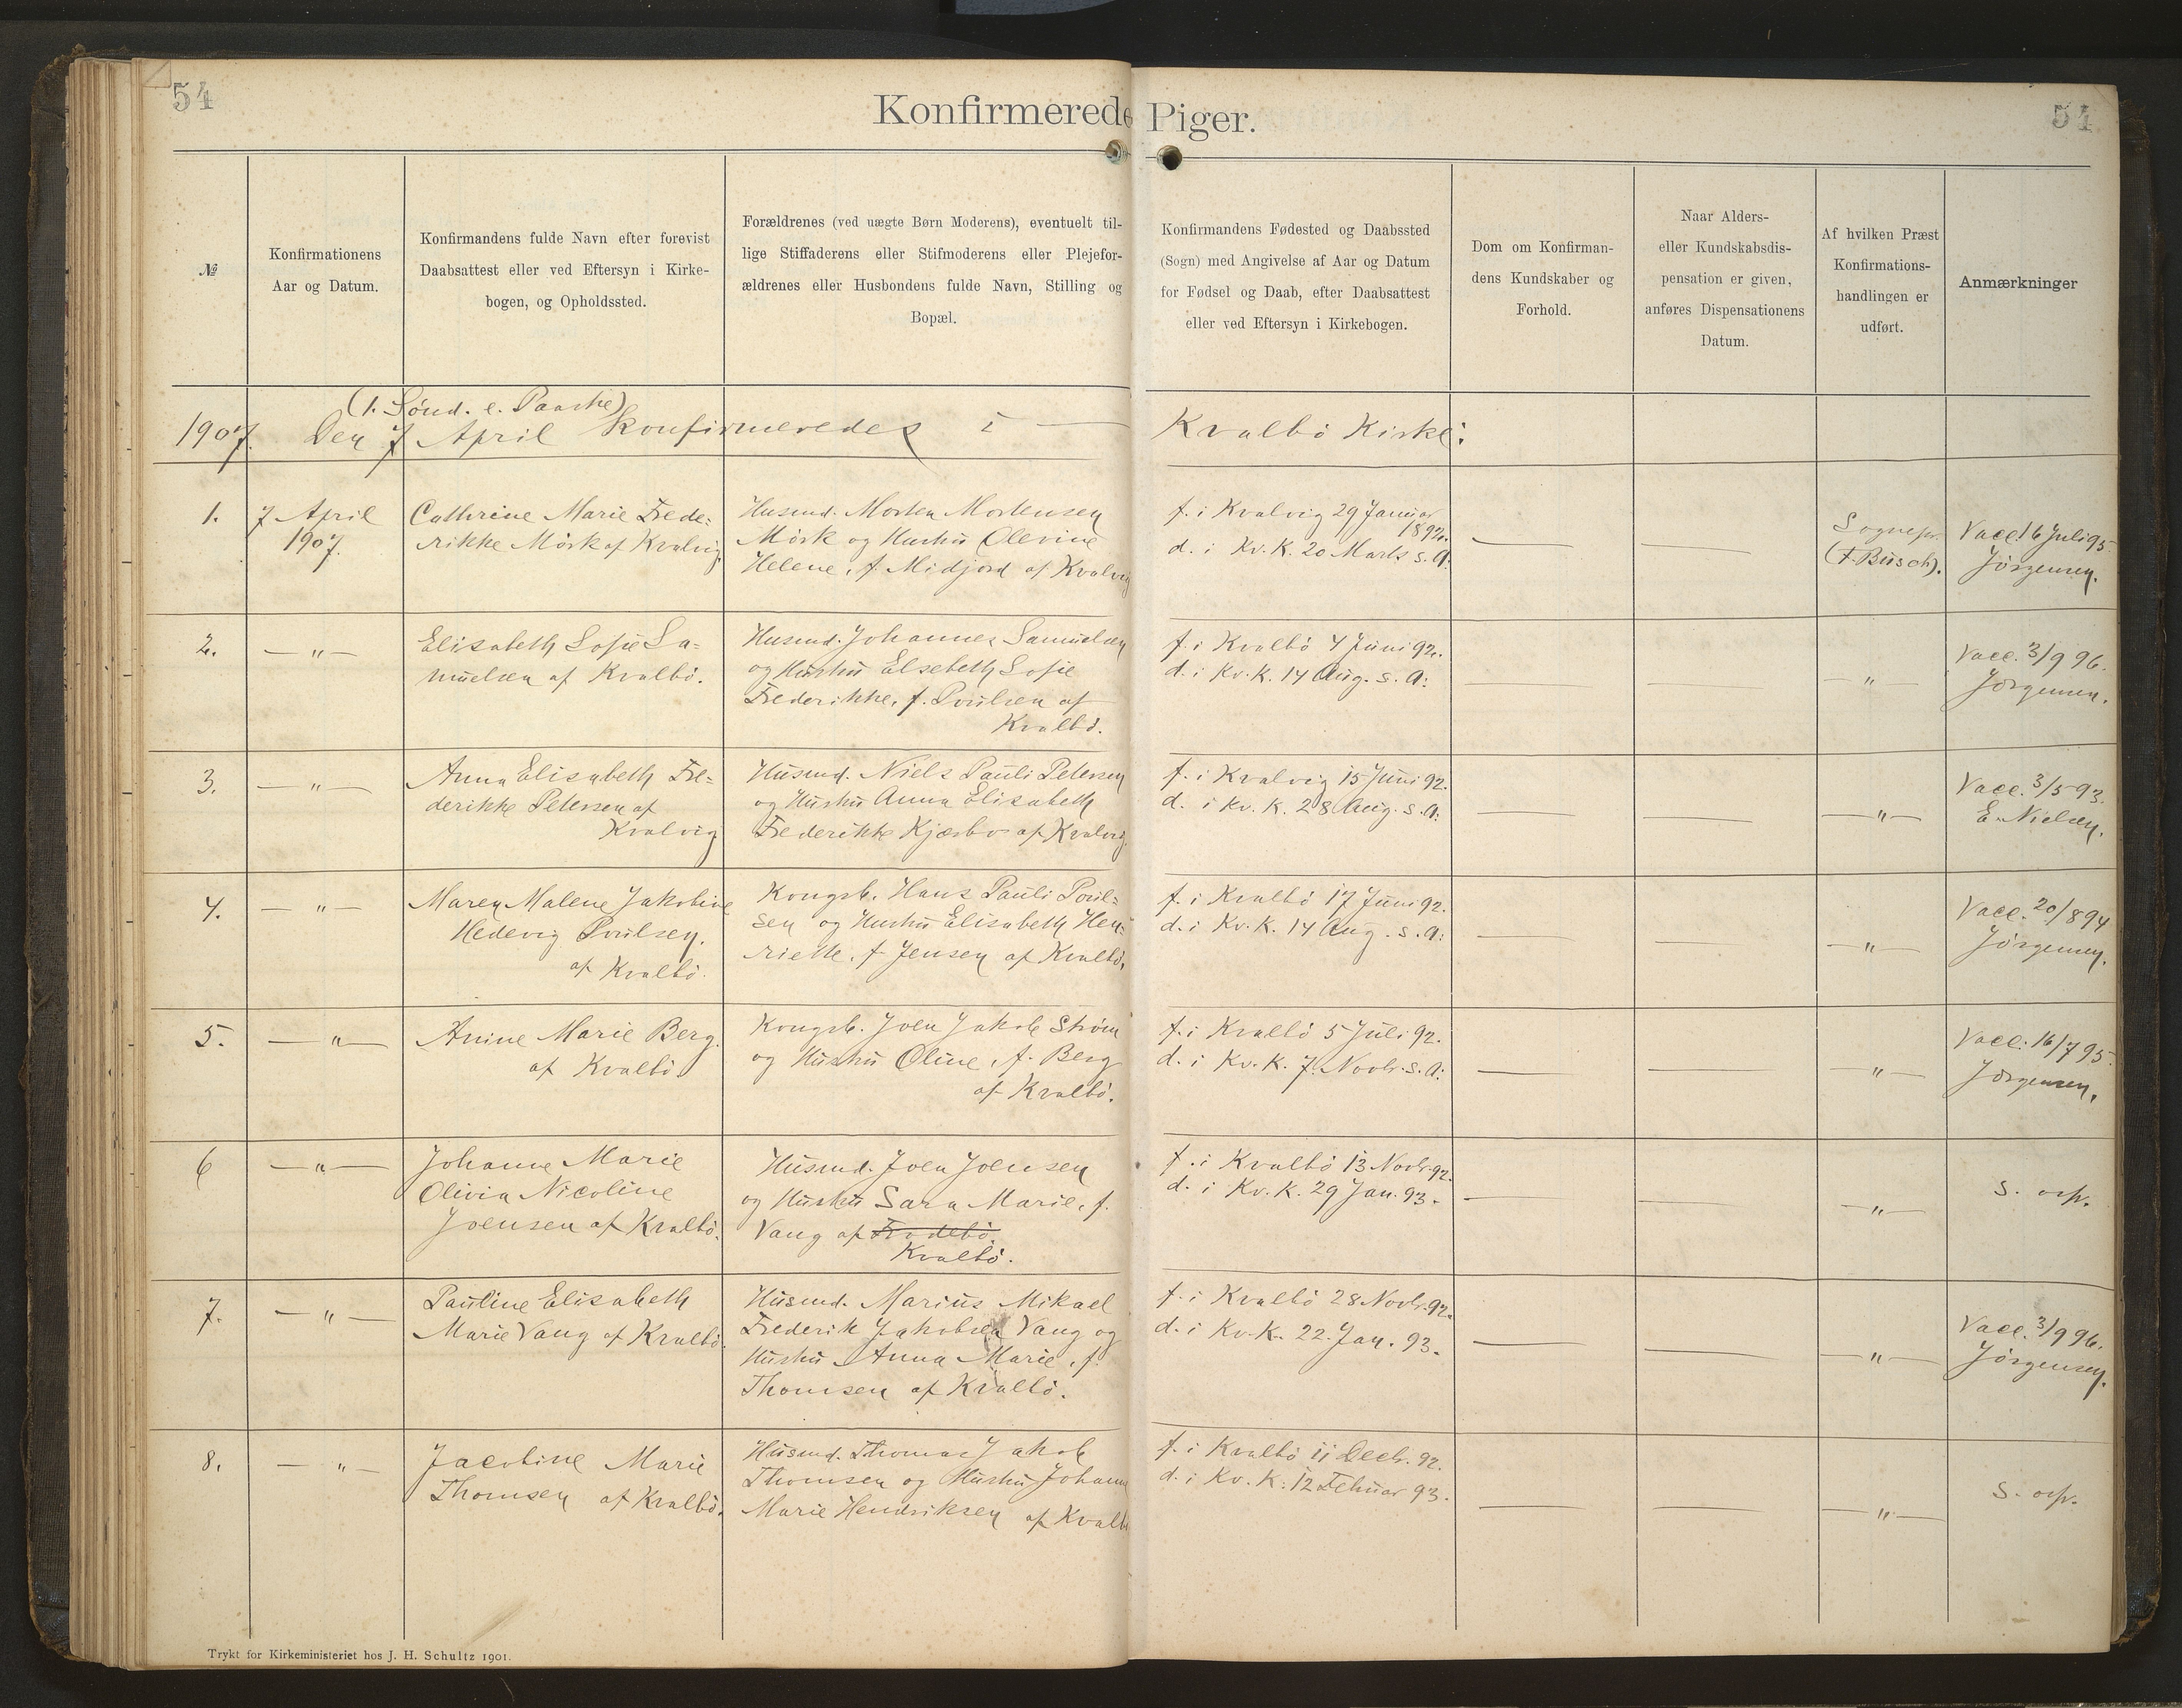 54
54
Konfirmerede Piger.
№
Konfirmationens
Aar og Datum.
Konfirmandens fulde Navn efter forevist
Daabsattest eller ved Eftersyn i Kirke-
bogen, og Opholdssted.
Forældrenes (ved uægte Børn Moderens), eventuelt til-
lige Stiffaderens eller Stifmoderens eller Plejefor-
ældrenes eller Husbondens fulde Navn, Stilling og
Bopæl.
Konfirmandens Fødested og Daabssted
(Sogn) med Angivelse af Aar og Datum
for Fødsel og Daab, efter Daabsattest
eller ved Eftersyn i Kirkebogen.
Dom om Konfirman-
dens Kundskaber og
Forhold.
Naar Alders-
eller Kundskabsdis-
pensation er given,
anføres Dispensationens
Datum.
Af hvilken Præst
Konfirmations-
handlingen er
udført.
Anmærkninger
(1. Sönd. e. Paaske)
1907. Den 7 April Konfirmeredes i — Kvalbö Kirke:
1.
7 April
1907.
Cathrine Marie Frede-
rikke Mörk af Kvalvig.
Husmd. Morten Mortensen
Mörk og Hustru Olevine
Helene, f. Midjord af Kvalvig
f. i Kvalvig 29 Januar
1892.
d. i Kv. K. 20 Marts s. A.
—
—
Sognepr.
(F. Busch).
Vacc. 16 Juli 95.
Jörgensen.
2.
— " —
Elisabeth Sofie Sa-
muelsen af Kvalbö.
Husmd. Johannes Samuelsen
og Hustru Elsebeth Sofie
Frederikke, f. Poulsen af
Kvalbö.
f. i Kvalbö 4 Juni 92.
d. i Kv. K. 14 Aug. s. A.
—
—
— " —
Vacc. 3/9 96.
Jörgensen.
3.
— " —
Anna Elisabeth Fre-
derikke Petersen af
Kvalvig
Husmd. Niels Pauli Petersen
og Hustru Anna Elisabeth
Frederikke Kjærbo af Kvalvig.
f. i Kvalvig 15 Juni 92.
d. i Kv. K. 28 Aug. s. A.
—
—
— " —
Vacc. 3/5 93.
E. Nielsen.
4.
— " —
Maren Malene Jakobine
Hedevig Poulsen.
af Kvalbö.
Kongsb. Hans Pauli Poul-
sen og Hustru Elisabeth Hen-
riette, f. Jensen af Kvalbö.
f. i Kvalbö 17 Juni 92.
d. i Kv. K. 14 Aug. s. A.
—
—
— " —
Vacc. 20/8 94
Jörgensen.
5.
— " —
Anine Marie Berg.
af Kvalbö
Kongsb. Joen Jakob Ström
og Hustru Oline, f. Berg
af Kvalbö.
f. i Kvalbö 5 Juli 92.
d. i Kv. K. 7. Novbr. s. A.
—
—
" —
Vacc. 16/7 95.
Jörgensen.
6
— " —
Johanne Marie
Olivia Nicoline
Joensen af Kvalbö.
Husmd. Joen Joensen
og Hustru Sara Marie, f.
Vang af Frodebö.
Kvalbö.
f. i Kvalbö 13 Novbr. 92.
d. i Kv. K. 29 Jan. 93.
—
—
— " —
s. osp.
7.
— " —
Pauline Elisabeth
Marie Vang af Kvalbö.
Husmd. Marius Mikael
Frederik Jakobsen Vang og
Hustru Anna Marie, f.
Thomsen af Kvalbö.
f. i Kvalbö 28 Novbr. 92.
d. i Kv. K. 22. Jan. 93.
—
—
— " —
Vacc. 3/9 96.
Jörgensen.
8.
— " —
Jacobine Marie
Thomsen af Kvalbö.
Husmd. Thomas Jakob
Thomsen og Hustru Johanne
Marie Hendriksen af Kvalb
f. i Kvalbö 11 Decb. 92.
d. i Kv. K. 12 Februar 93.
—
—
— " —
s. osp.
Trykt for Kirkeministeriet hos J. H. Schultz 1901.